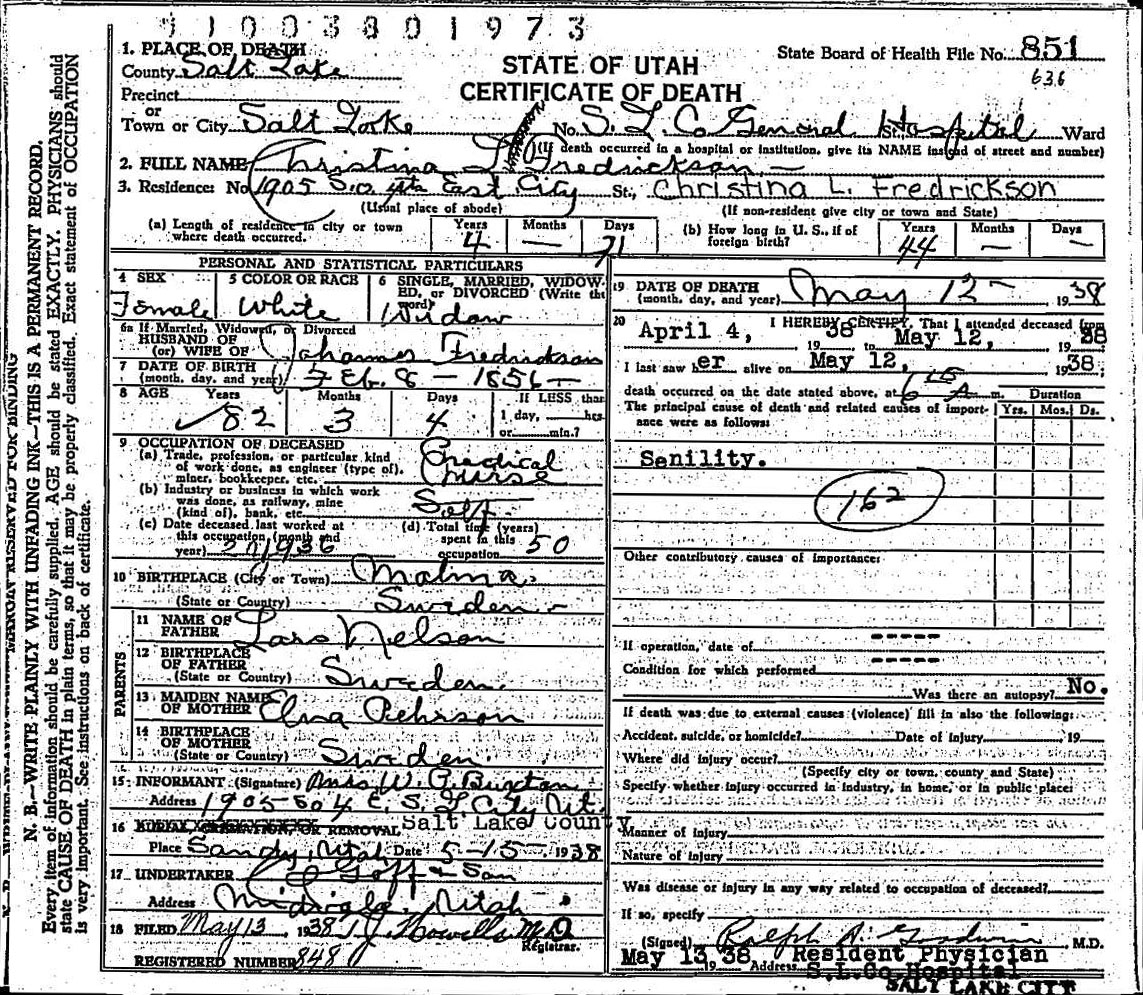 91003801973
1. PLACE OF DEATH
County Salt Lake
Precinct
or
Town or City Salt Lake
STATE OF UTAH
CERTIFICATE OF DEATH
State Board of Health File No. 851
636
No. S. L. Co General Hospital St., Ward
(If death occurred in a hospital or institution, give its NAME instead of street and number)
2. FULL NAME Christina L Fredrickson
3. Residence: No 1905 So 4th East City St., Christina L. Fredrickson
(Usual place of abode)
(If non-resident give city or town and State)
(a) Length of residence in city or town where death occurred.
Years 4 Months — Days 71
(b) How long in U. S., if of foreign birth?
Years 44 Months — Days —
PERSONAL AND STATISTICAL PARTICULARS
4 SEX Female
5 COLOR OR RACE White
6 SINGLE, MARRIED, WIDOWED, or DIVORCED (Write the word) Widow
6a If Married, Widowed, or Divorced
HUSBAND OF
(or) WIFE OF Johannes Fredrickson
7 DATE OF BIRTH
(month, day, and year) Feb. 8 – 1856 –
8 AGE Years 82 Months 3 Days 4
If LESS than
1 day, hrs.
or min.?
9 OCCUPATION OF DECEASED
(a) Trade, profession, or particular kind
of work done, as engineer (type of),
miner, bookkeeper, etc. Practical nurse
(b) Industry or business in which work
was done, as railway, mine
(kind of), bank, etc. Self
(c) Date deceased last worked at
this occupation (month and
year) 2/1936
(d) Total time (years)
spent in this
occupation 50
10 BIRTHPLACE (City or Town) Malmo
(State or Country) Sweden
PARENTS
11 NAME OF FATHER Lars Nelson
12 BIRTHPLACE OF FATHER
(State or Country) Sweden.
13 MAIDEN NAME OF MOTHER Elna Pehrson
14 BIRTHPLACE OF MOTHER
(State or Country) Sweden.
15 INFORMANT (Signature) Mrs W. G. Buxton
Address 1905 So 4 E. S. L. City Ut.
16 BURIAL, CREMATION, OR REMOVAL Salt Lake County
Place Sandy, Utah Date 5-15- 1938
17 UNDERTAKER Goff & Son
Address Midvale, Utah
18 FILED May 13 1938 T. J. Howells M.D.
Registrar.
REGISTERED NUMBER 848
19 DATE OF DEATH
(month, day, and year) May 12 – 1938
20 I HEREBY CERTIFY, That I attended deceased from
April 4, 1938 to May 12, 1938
I last saw her alive on May 12, 1938;
death occurred on the date stated above, at 6 15 A m.
The principal cause of death and related causes of importance were as follows:
Duration
Yrs. Mos. Ds.
Senility.
162
Other contributory causes of importance:
If operation, date of -----
Condition for which performed -----
Was there an autopsy? No.
If death was due to external causes (violence) fill in also the following:
Accident, suicide, or homicide? Date of injury 19
Where did injury occur?
(Specify city or town, county and State)
Specify whether injury occurred in industry, in home, or in public place:
Manner of injury
Nature of injury
Was disease or injury in any way related to occupation of deceased?
If so, specify
(Signed) Ralph A. Goodwin M.D.
May 13 1938 Address Resident Physician
S.L.Co. Hospital
SALT LAKE CITY
N. B.—WRITE PLAINLY WITH UNFADING INK—THIS IS A PERMANENT RECORD.
Every item of information should be carefully supplied. AGE should be stated EXACTLY. PHYSICIANS should
state CAUSE OF DEATH in plain terms, so that it may be properly classified. Exact statement of OCCUPATION
is very important. See instructions on back of certificate.
MARGIN RESERVED FOR BINDING